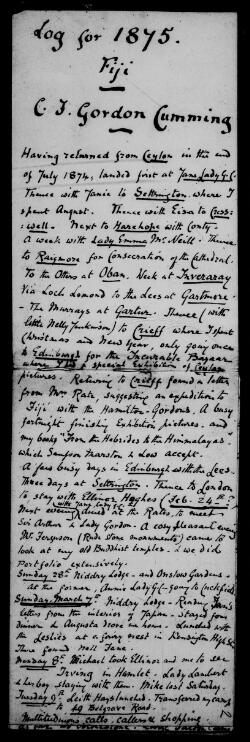 Log for 1875.
Fiji
C. F. Gordon Cumming
Having returned from Ceylon in the end
of July 1874, landed first at Jane, Lady G.C.
Thence with Janie to Settrington, where I
spent August. Thence with Eisa to Cress:
:well - Next to Harehope with Conty -
A week with Lady Emma McNeill. Thence
to Raigmore for Consecration of the Cathedral.
To the Others at Oban. Week at Inveraray
Via Loch Lomond to the Lees at Gartmore.
- The Murrays at Gartur. Thence (with
little Nelly Jenkinson) to Crieff where I spent
Christmas and New Year, only going once
to Edinburgh for the Incurable Bazaar
where I had a special Exhibition of Ceylon
pictures. Returning to Crieff found a letter
from Mrs Rate, suggesting an expedition to
Fiji with the Hamilton-Gordons. A busy
fortnight finishing Exhibition pictures, and
my book "From the Hebrides to the Himmalayas"
which Sampson Marston & Low accept.
A few busy days in Edinburgh with the Lees.
Three days at Settrington. Thence to London
to stay with Ellinor Hughes (Feb. 24th?
Next with Jany, Lady G.C.
evening dined with the Rates, to meet
Sir Arthur & Lady Gordon. A cosy pleasant evening
Mr. Ferguson (Rude Stone monuments) came to
look at my old Buddhist temples - & we did
Portfolio extensively.
Sunday 28th Niddry Lodge - and Onslow Gardens -
at the former, Annie Lady G-
Sunday, March 7th Niddry Lodge - Reading Jam's
letters from the interior of Japan. Stayed for
dinner at Augusta's. Lunched with
the Leslies at a living nest in Kensington High St.
There found Nell Jane.
Monday 8th Michael took Ellinor and me to see
Irving in Hamlet. Lady Lambert
& her boy staying with them. Mike left Saturday.
Tuesday 9th Leith Hay's lunch. Transferred my camp
to 49 Belgrave Road.
Multitudinous calls, callers & shopping.